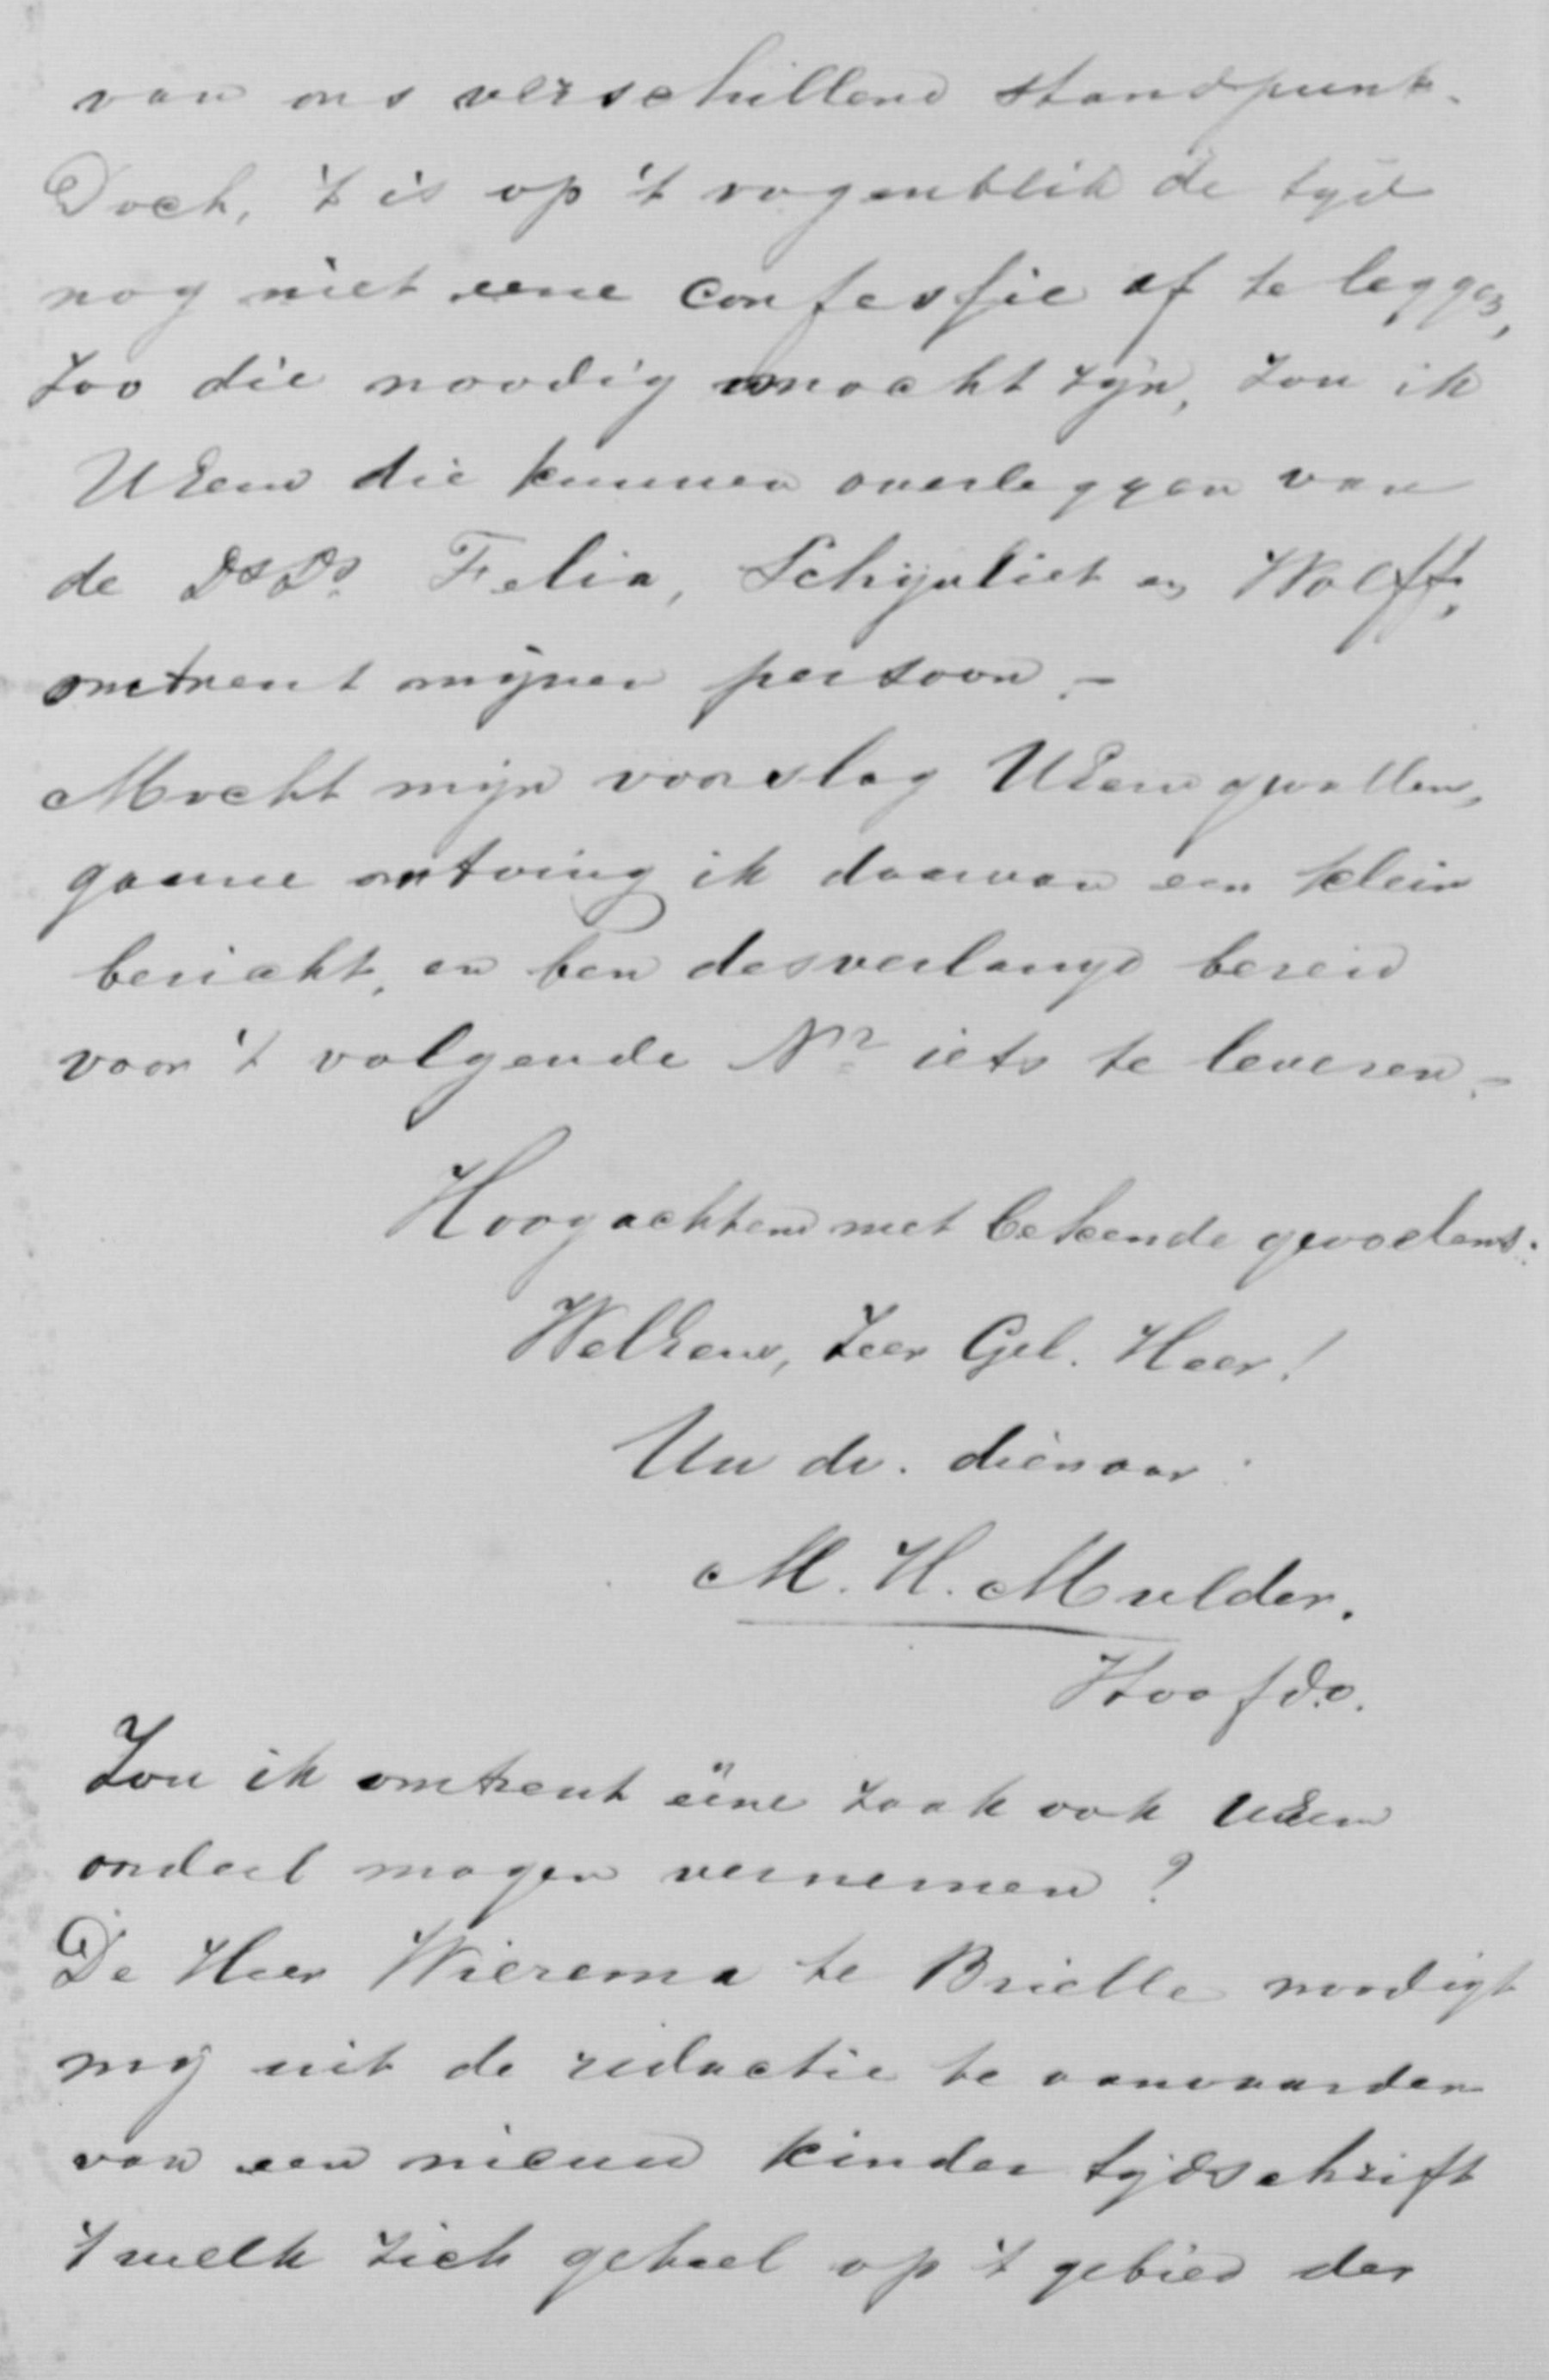 van ons verschillend standpunt.
Doch, 't is op 't oogenblik de tijd
nog niet eene confessie af te leggen,
zoo die noodig mocht zijn, zou ik
UEew die kunnen overleggen van
de Ds Ds. Felix, Schijvliet en Wolff,
omtrent mijnen persoon. -
Mocht mijn voorslag UEew gevallen,
gaarne ontving ik daarvan een klein
bericht, en ben desverlangd bereid
voor 't volgende Nr iets te leveren. -
Hoogachtend met bekende gevoelens.
WelEew, Zeer Gel. Heer!
Uw dv. dienaar
M. H. Mulder.
Hoofdo.
Zou ik omtrent ééne zaak ook UEew
ordeel mogen vernemen?
De Heer Wierema te Brielle noodigt
mij uit de redactie te aanvaarden
van een nieuw kinder tijdschrift
't welk zich geheel op 't gebied der